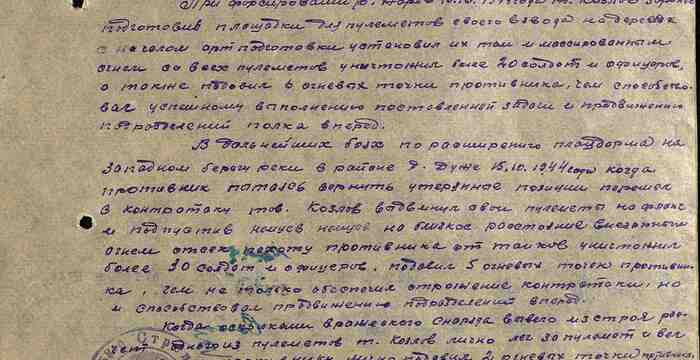 При форсировании р. Нарев 10.10.1944 года т. Козлов заранее
подготовив площадки для пулеметов своего взвода на деревьях
с началом артподготовки установил их там и массированным
огнем со всех пулеметов уничтожил более 20 солдат и офицеров,
а также подавил 6 огневых точки противника, чем способство-
вал успешному выполнению поставленной задачи и продвижению
подразделений полка вперед.
В дальнейших боях по расширению плацдарма на
западном берегу реки в районе д. Дуже 15.10.1944 года когда
противник пытаясь вернуть утерянные позиции перешел
в контратаку тов. Козлов выдвинул свои пулеметы на фланг
и подпустив немцев на близкое расстояние внезапным
огнем отсек пехоту противника от танков уничтожил
более 30 солдат и офицеров, подавил 5 огневых точек противни-
ка, чем не только обеспечил отражение контратаки, но
и способствовал продвижению подразделений вперед.
Когда осколками вражеского снаряда вывело из строя рас-
чет одного из пулеметов т. Козлов лично лег за пулемет и вел
лично подавил 2 огневых точки